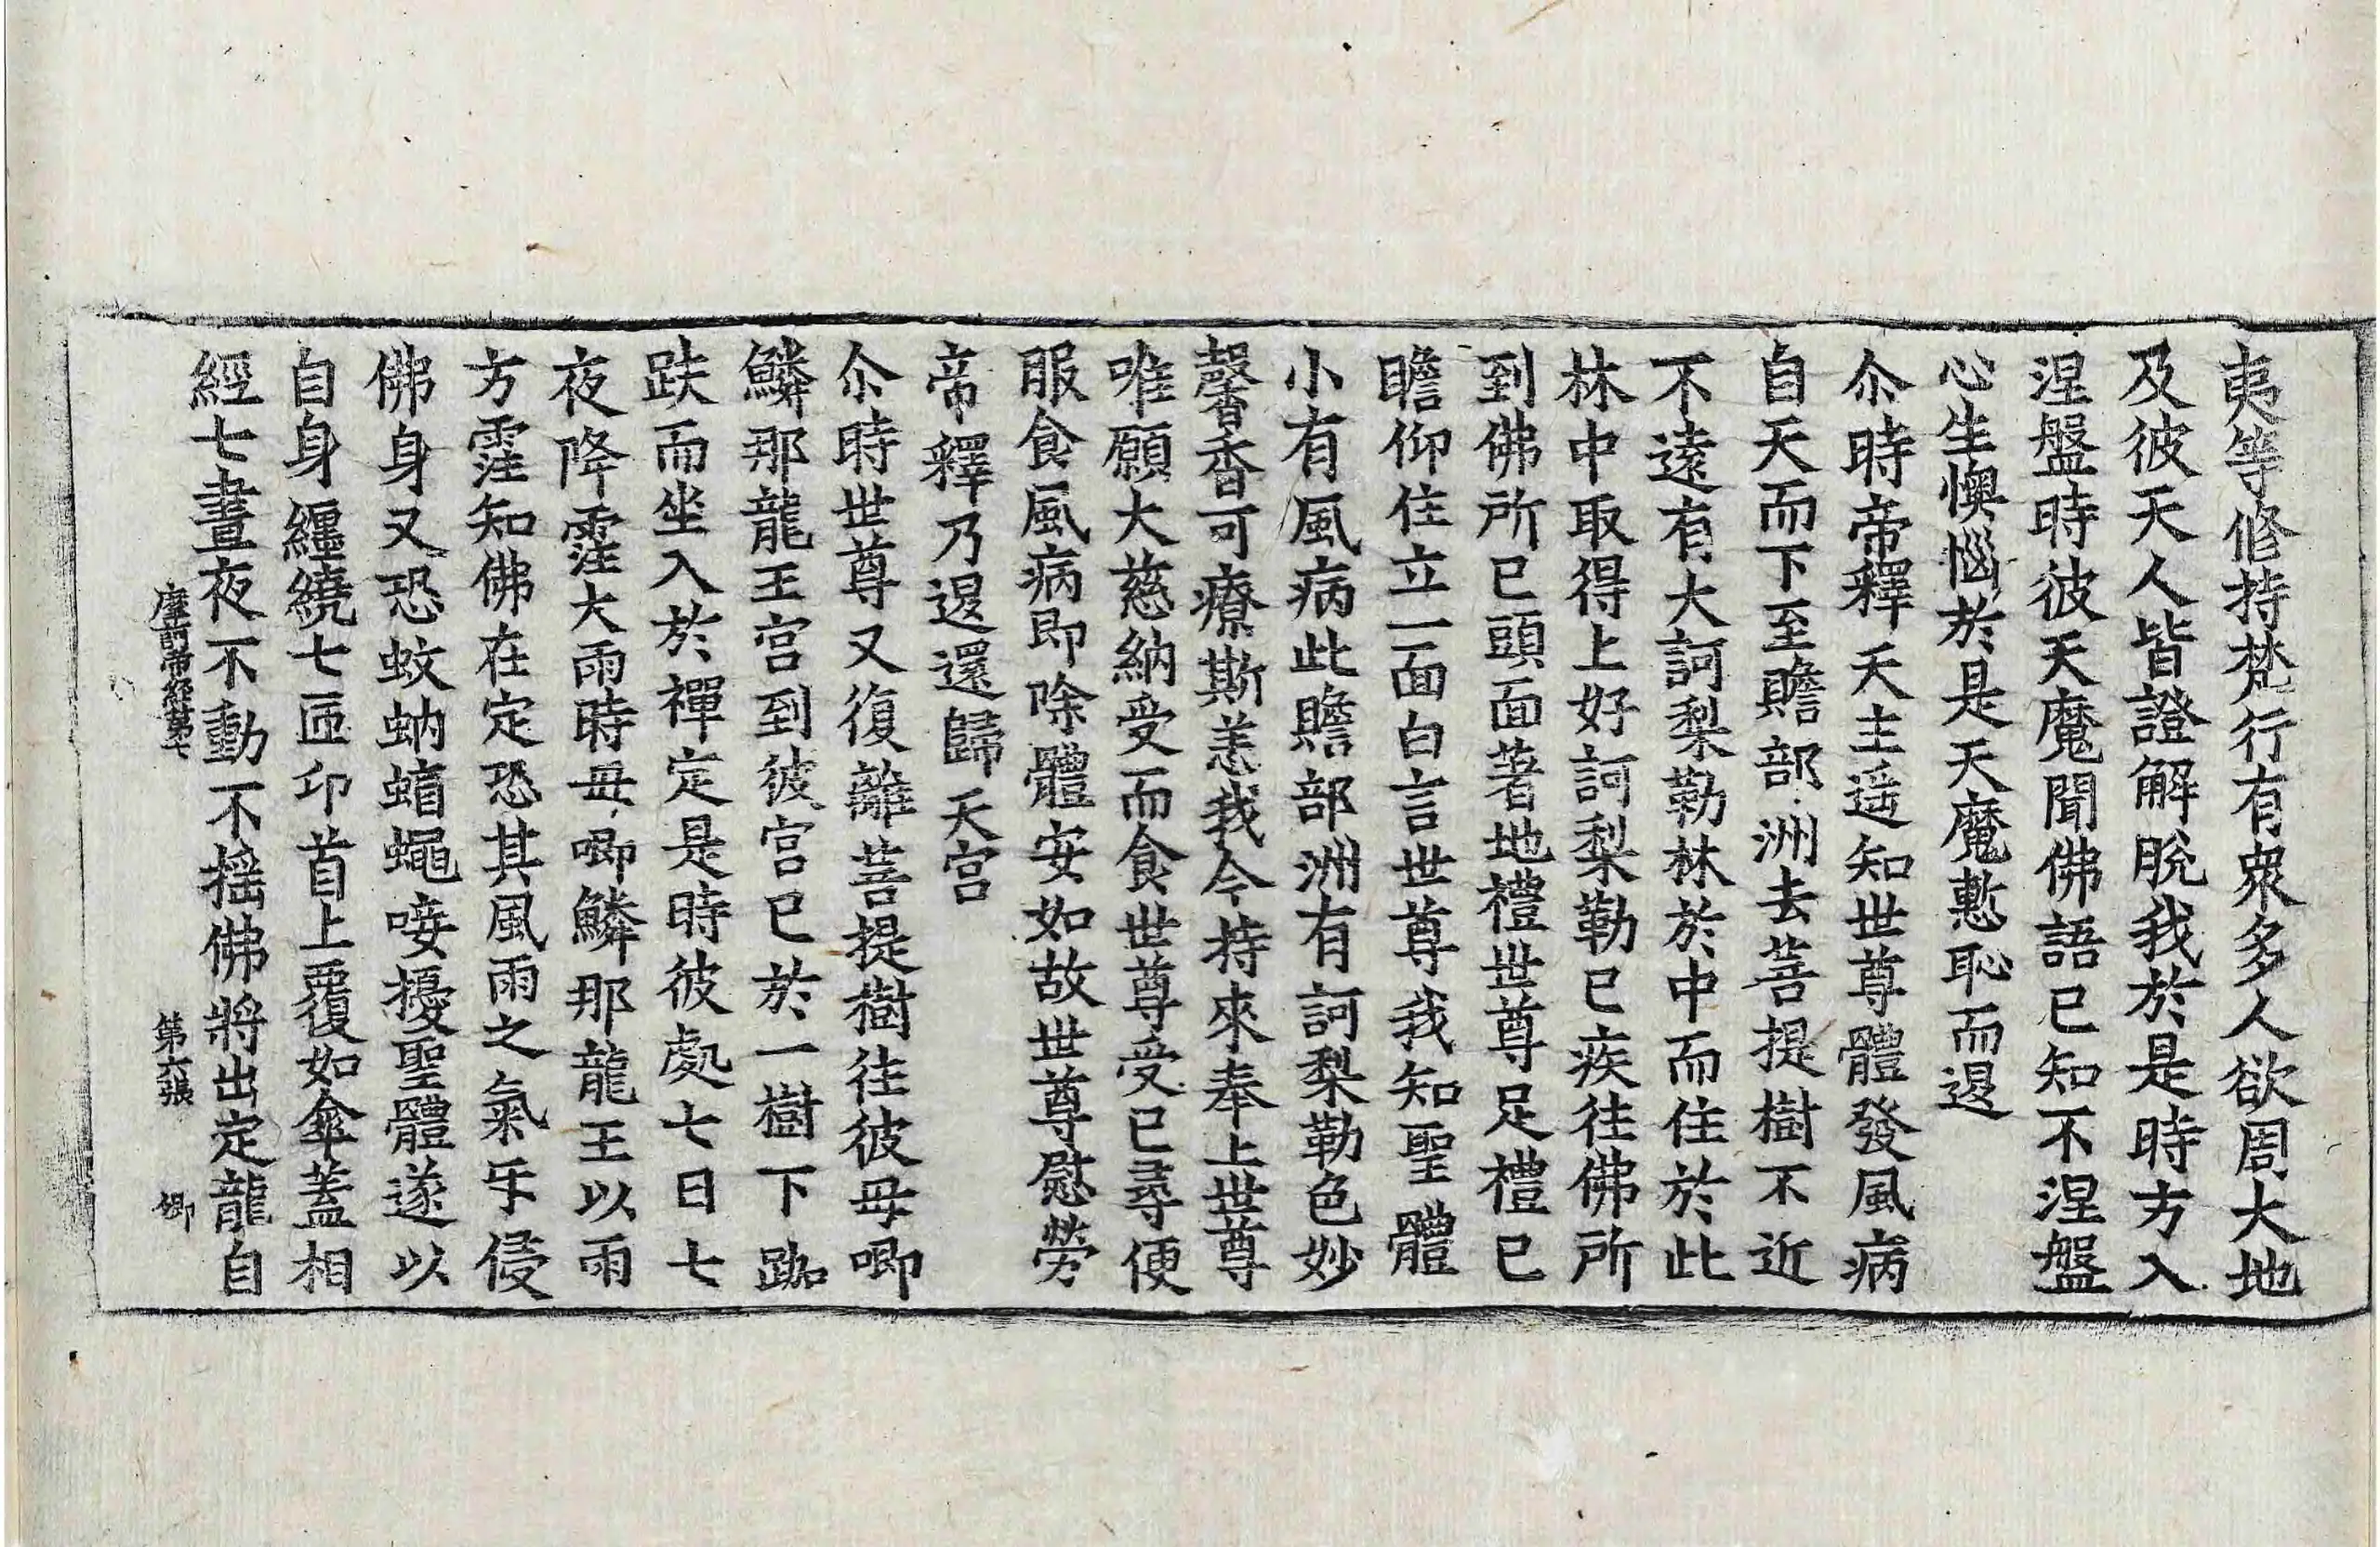 夷等修持梵行有衆多人欲周大地
及彼天人皆證解脫我於是時方入
涅盤時彼天魔聞佛語已知不涅盤
心生懊惱於是天魔慙恥而退
尒時帝釋天主遥知世尊體發風病
自天而下至贍部洲去菩提樹不近
不遠有大訶梨勒林於中而住於此
林中取得上好訶梨勒已疾往佛所
到佛所已頭面著地禮世尊足禮已
瞻仰住立一面白言世尊我知聖體
小有風病此贍部洲有訶梨勒色妙
馨香可療斯恙我今持來奉上世尊
唯願大慈納受而食世尊受已尋便
服食風病即除體安如故世尊慰勞
帝釋乃退還歸天宮
尒時世尊又復離菩提樹往彼毋唧
鱗那龍王宮到彼宮已於一樹下跏
趺而坐入於禪定是時彼處七日七
夜降霔大雨時毋唧鱗那龍王以雨
方霔知佛在定恐其風雨之氣乐侵
佛身又恐蚊蚋蝱蠅唼擾聖體遂以
自身纏繞七匝卬首上覆如傘蓋相
經七晝夜不動不摇佛將出定龍自
摩訶帝經第七 第六張 卿